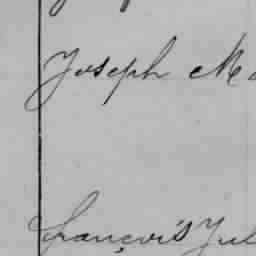 Joseph M
François Jul